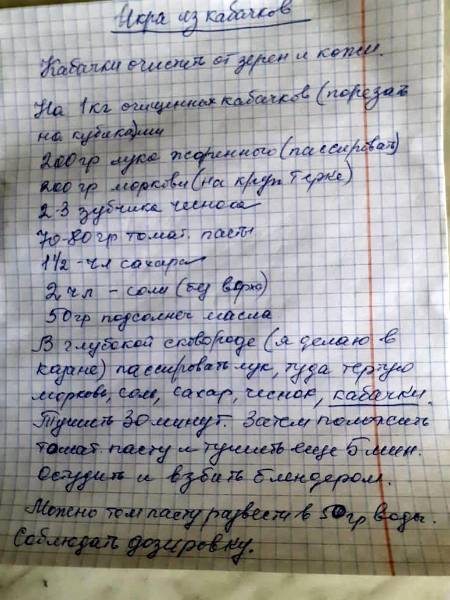 Икра из кабачков
Кабачки очистить от зерен и кожи.
На 1кг очищенных кабачков (порезать
на кубиками
200гр лука жаренного (пассировать)
200гр моркови (на крупн терке)
2-3 зубчика чеснока
70-80гр томат. пасты
1 1/2 - чл сахара
2 чл - соли (без верха)
50гр подсолнеч масла
В глубокой сковороде (я делаю в
казане) пассировать лук, туда тертую
морковь, соль, сахар, чеснок, кабачки.
Тушить 30 минут. Затем положить
томат. пасту и тушить еще 5 мин.
Остудить и взбить блендером.
Можно том пасту развести в 50гр воды.
Соблюдать дозировку.